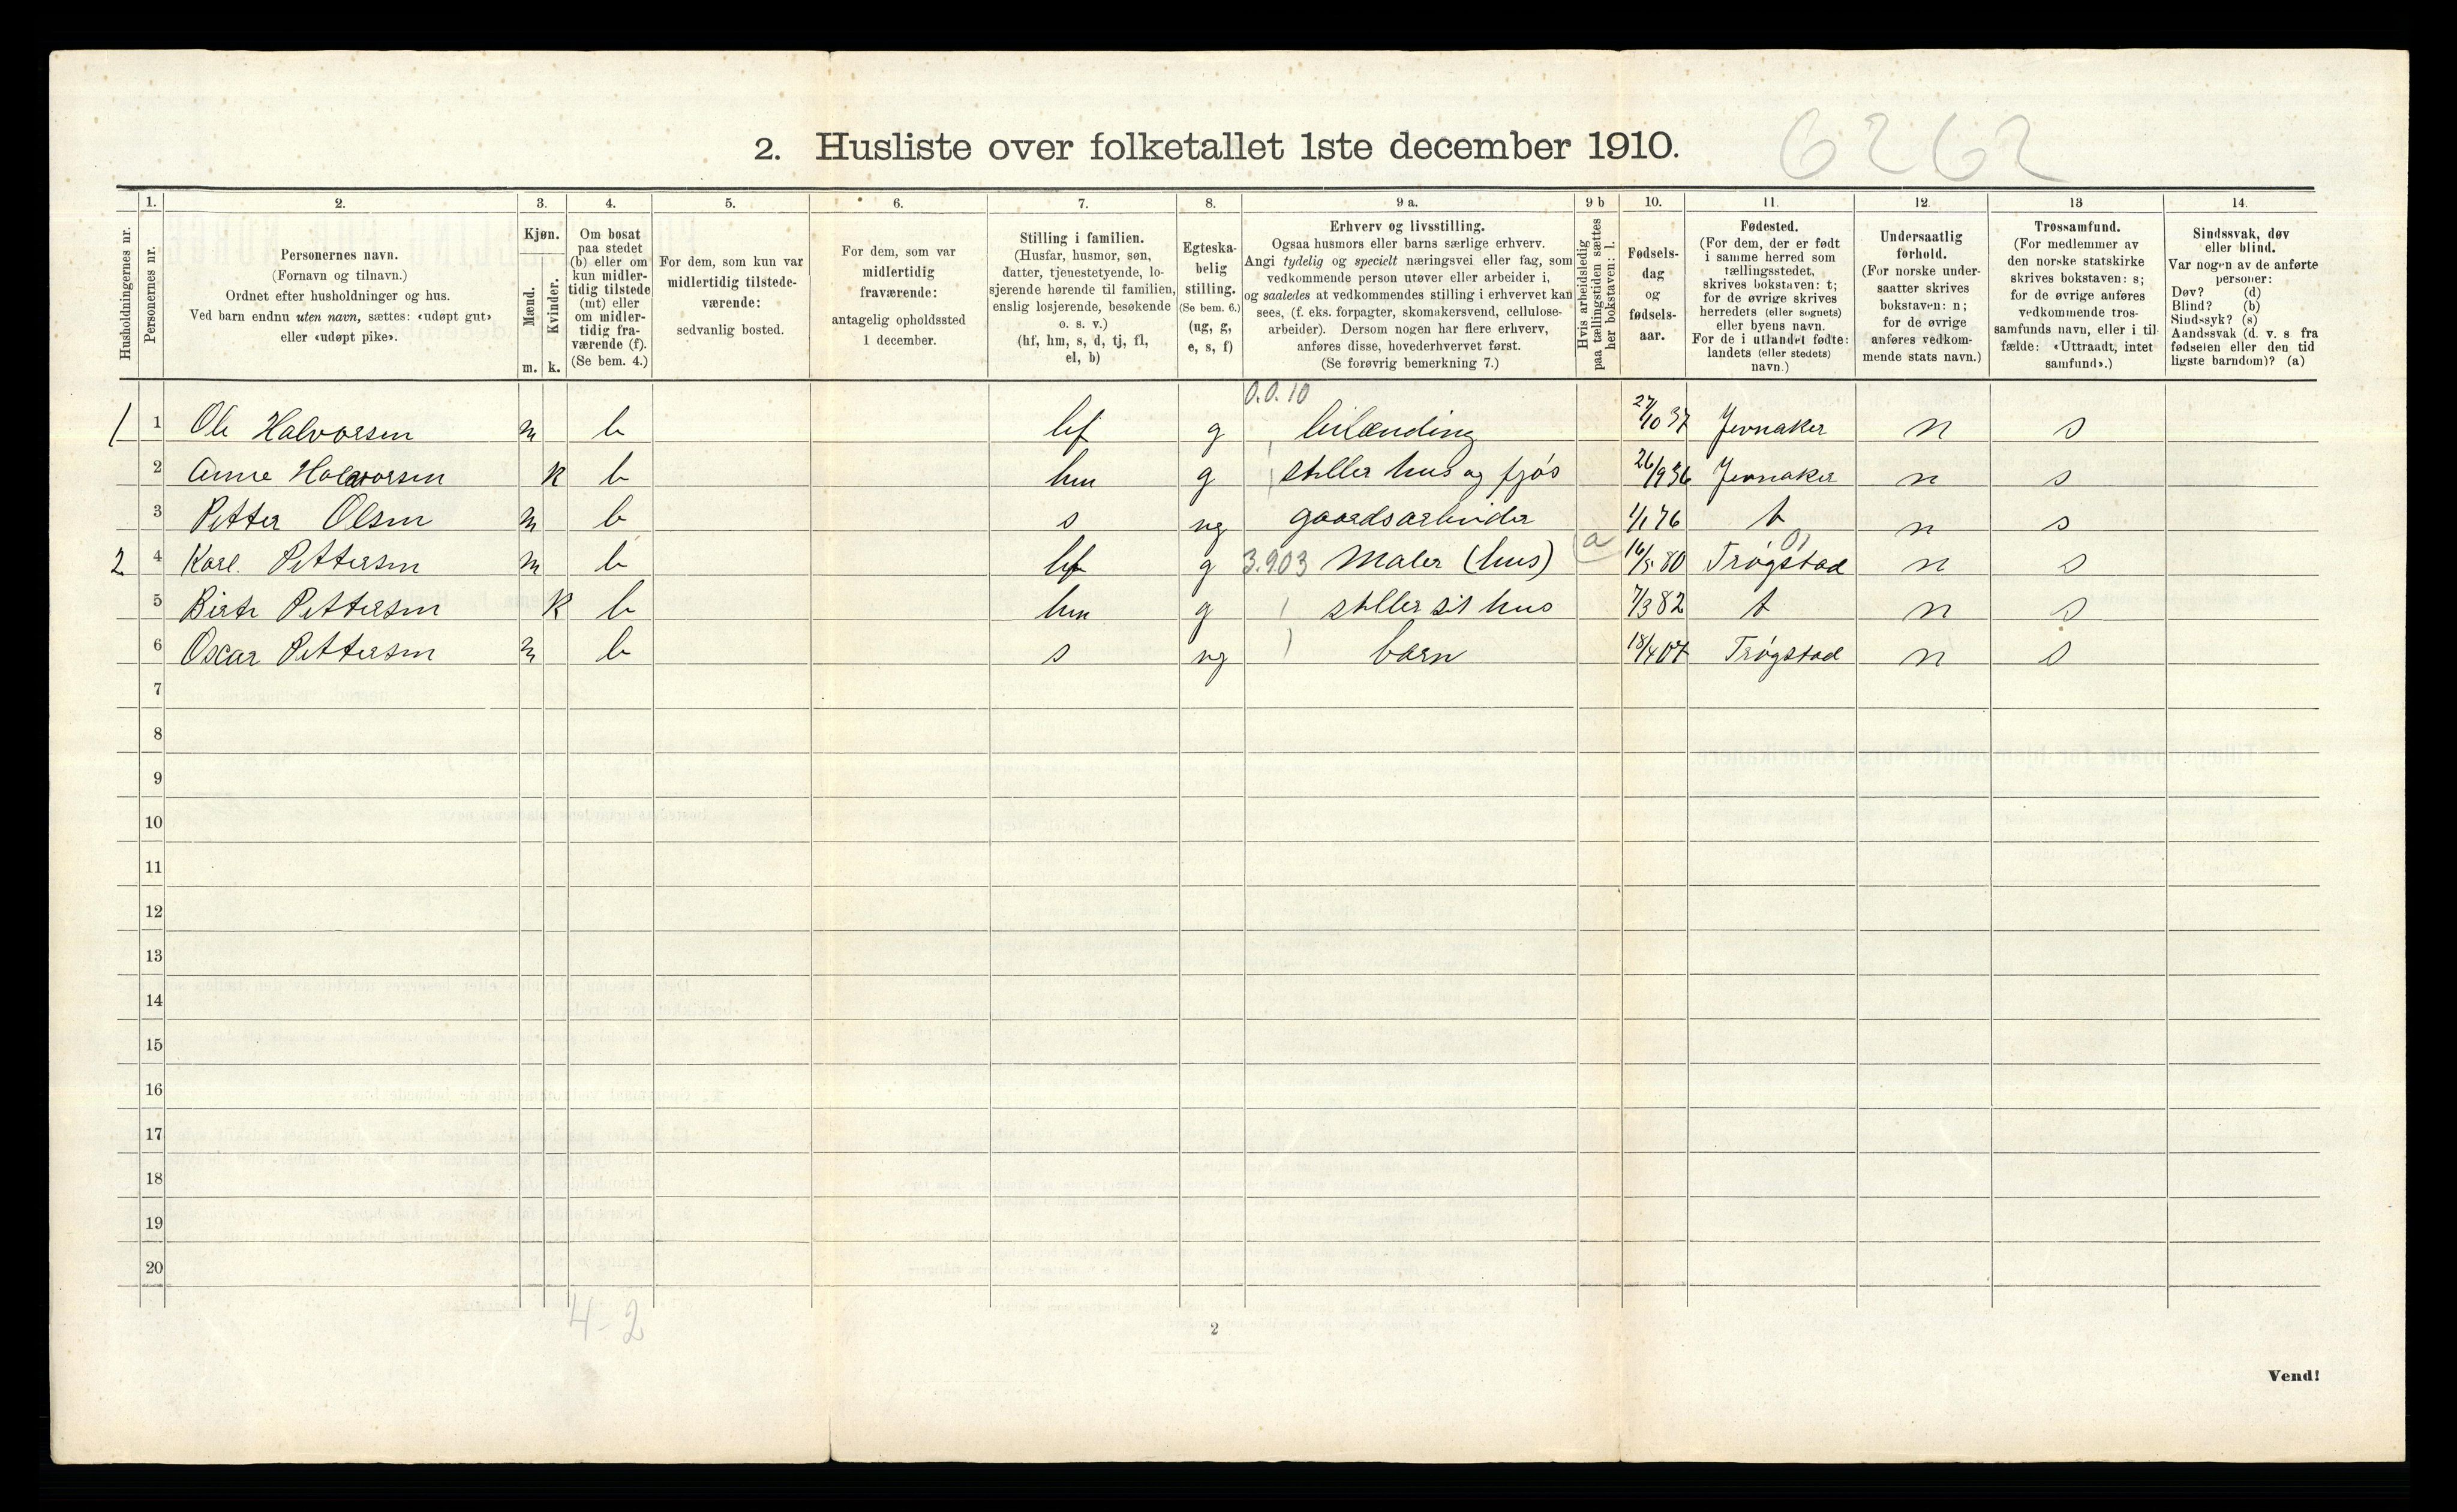 6262
2. Husliste over folketallet 1ste december 1910.
Husholdningernes nr.
1. Personernes nr.
2. Personernes navn.
(Fornavn og tilnavn.)
Ordnet efter husholdninger og hus.
Ved barn endnu uten navn, sættes: «udøpt gut»
eller «udøpt pike».
3. Kjøn.
Mænd. m.
Kvinder. k.
4. Om bosat
paa stedet
(b) eller om
kun midler-
tidig tilstede
(mt) eller
om midler-
tidig fra-
værende (f).
(Se bem. 4.)
5. For dem, som kun var
midlertidig tilstede-
værende:
sedvanlig bosted.
6. For dem, som var
midlertidig
fraværende:
antagelig opholdssted
1 december.
7. Stilling i familien.
(Husfar, husmor, søn,
datter, tjenestetyende, lo-
sjerende hørende til familien,
enslig losjerende, besøkende
o. s. v.)
(hf, hm, s, d, tj, fl,
el, b)
8. Egteska-
belig
stilling.
(Se bem. 6.)
(ug, g,
e, s, f)
9 a. Erhverv og livsstilling.
Ogsaa husmors eller barns særlige erhverv.
Angi tydelig og specielt næringsvei eller fag, som
vedkommende person utøver eller arbeider i,
og saaledes at vedkommendes stilling i erhvervet kan
sees, (f. eks. forpagter, skomakersvend, cellulose-
arbeider). Dersom nogen har flere erhverv,
anføres disse, hovederhvervet først.
(Se forøvrig bemerkning 7.)
9 b Hvis arbeidsledig
paa tællingstiden sættes
her bokstaven: l.
10. Fødsels-
dag
og
fødsels-
aar.
11. Fødested.
(For dem, der er født
i samme herred som
tællingsstedet,
skrives bokstaven: t;
for de øvrige skrives
herredets (eller sognets)
eller byens navn.
For de i utlandet fødte:
landets (eller stedets)
navn.)
12. Undersaatlig
forhold.
(For norske under-
saatter skrives
bokstaven: n;
for de øvrige
anføres vedkom-
mende stats navn.)
13 Trossamfund.
(For medlemmer av
den norske statskirke
skrives bokstaven: s;
for de øvrige anføres
vedkommende tros-
samfunds navn, eller i til-
fælde: «Uttraadt, intet
samfund».)
14. Sindssvak, døv
eller blind.
Var nogen av de anførte
personer:
Døv? (d)
Blind? (b)
Sindssyk? (s)
Aandssvak (d. v. s fra
fødselen eller den tid
ligste barndom)? (a)
0.0.10
1 1 Ole Halvorsen m b hf g 27/10 37 Jevnaker n s
2 Anne Halvorsen k b hm g steller hus og fjøs 26/9 36 Jevnaker n s
3 Petter Olsen m b s ug gaardsarbeider 1/1 76 t n s
2 4 Karl Pettersen m b hf g 3.903 Maler (hus) a 16/5 80 Trøgstad 01 n s
5 Birte Pettersen k b hm g steller sit hus 7/3 82 t n s
6 Oscar Pettersen m b s ug barn 18/4 07 Trøgstad n s
7
8
9
10
11
12
13
14
15
16
17
18
19
20
4-2
2
Vend!